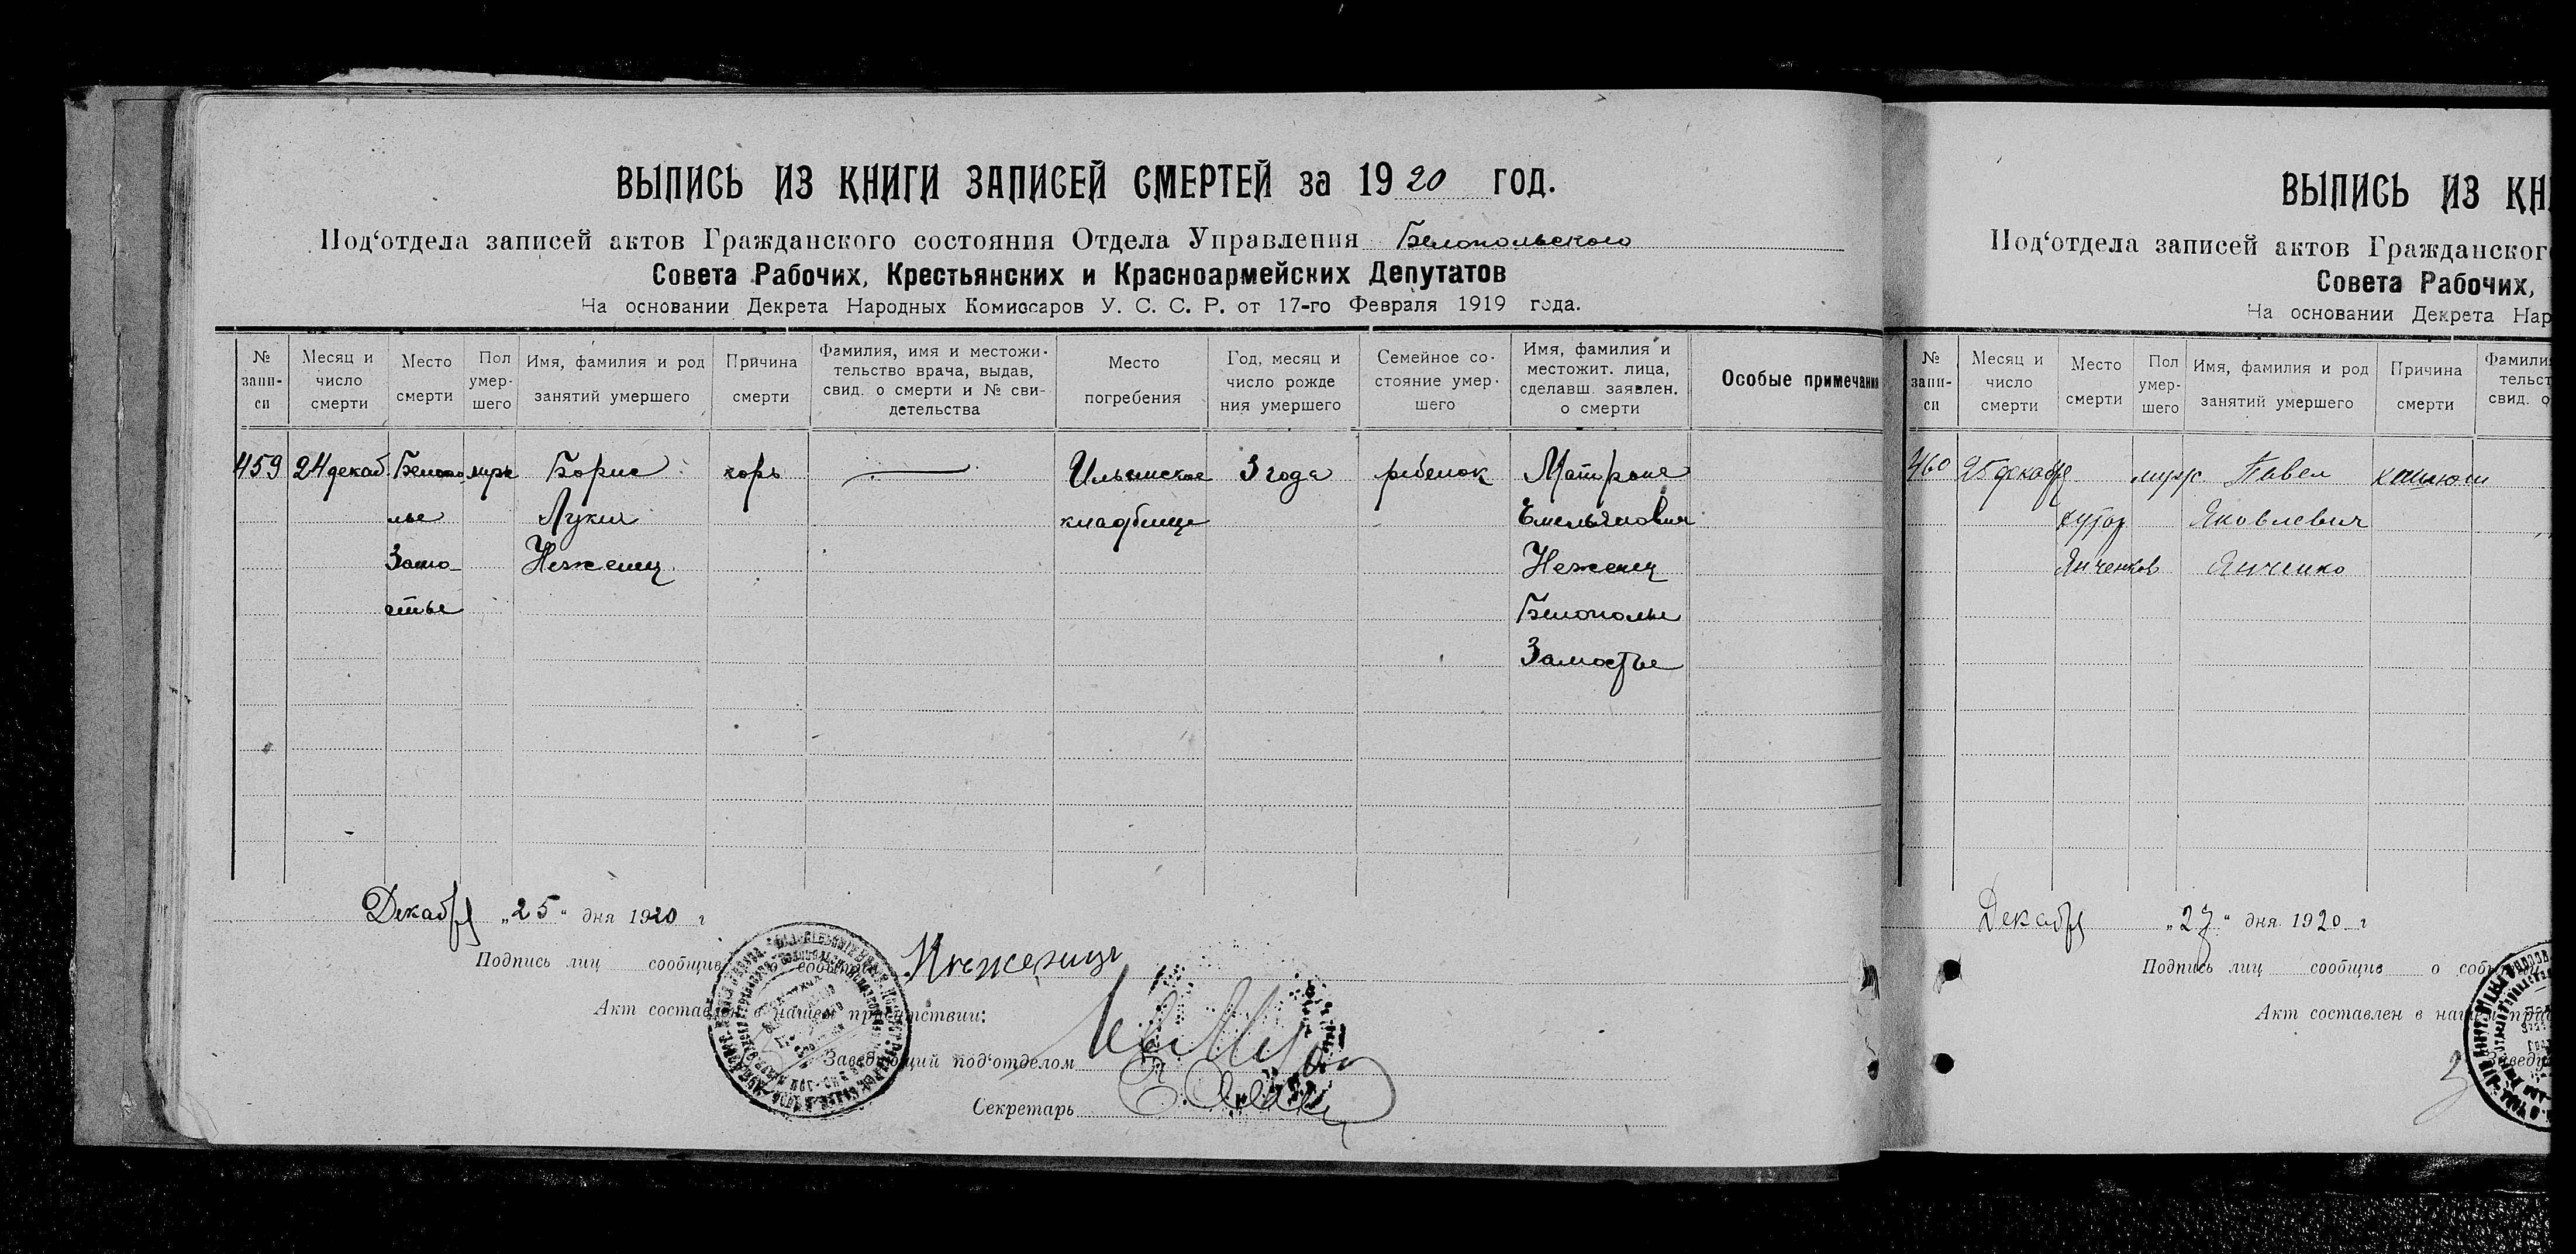 ВЫПИСЬ ИЗ КНИГИ ЗАПИСЕЙ СМЕРТЕЙ за 1920 год.
Под‘отдела записей актов Гражданского состояния Отдела Управления Белопольского
Совета Рабочих, Крестьянских и Красноармейских Депутатов
На основании Декрета Народных Комиссаров У. С. С. Р. от 17-го Февраля 1919 года.
№ запи-си
Месяц и число смерти
Место смерти
Пол умер-шего
Имя, фамилия и род занятий умершего
Причина смерти
Фамилия, имя и местожи-тельство врача, выдав, свид. о смерти и № сви-детельства
Место погребения
Год, месяц и число рожде ния умершего
Семейное со-стояние умер-шего
Имя, фамилия и местожит. лица, сделавш. заявлен. о смерти
Особые примечания
459 24 декаб. Белопо муж Борис корь — Ильинское 3 года ребенок Матрона
лье Лукич кладбище Емельянович
Замо- Неженец Неженец
стье Белополье
Замостье
Декабря „25“ дня 1920 г
Подпись лиц сообщив
Акт составлен в нашем присутствии:
Заведующий под‘отделом
Секретарь
ВЫПИСЬ ИЗ КН
Под‘отдела записей актов Гражданског
Совета Рабочих,
На основании Декрета Нар
№ запи-си
Месяц и число смерти
Место смерти
Пол умер-шего
Имя, фамилия и род занятий умершего
Причина смерти
Фамили тельст свид. о
460 25 декабря муж. Павел
хутор Яковлевич
Янченков Янченко
Декабря „27“ дня 1920 г
Подпись лиц сообщив о соб
Акт составлен в на
Заведу